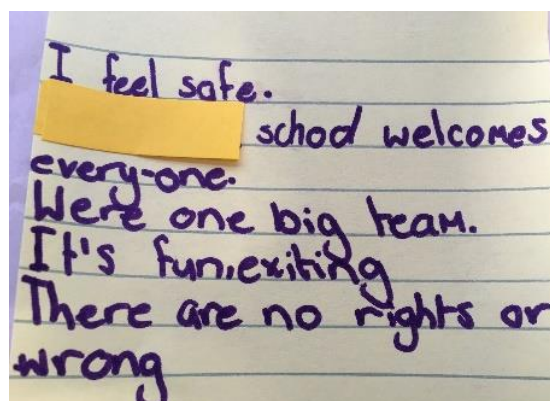 I feel safe.
schod welcomes
every-one.
Were one big team.
It's fun,exiting
There are no rights or
wrong